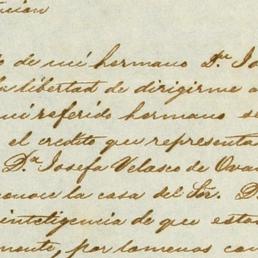 de mi hermano Dn
la libertad de dirigirme a
mi referido hermano se
el credito que representa
Da Josefa Velasco de Ova
conoce la casa del Sor. D.
inteligencia de que esta
mente, por lo menos con